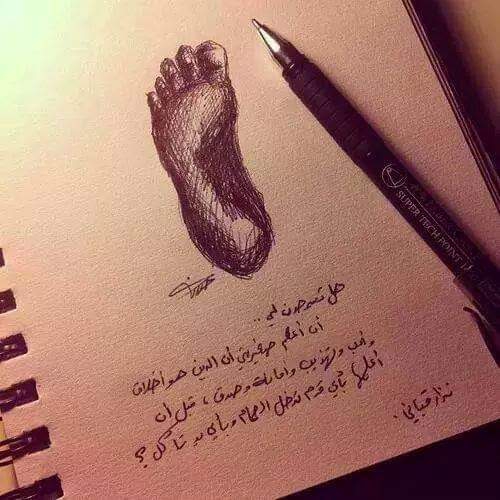 هل تسمحون لي ..
أن أعلم صغيرتي أن الدين هو أخلاق
وأدب وتهذيب وأمانة وصدق ، قبل أن
أعلمها بأي قدم تدخل الحمام وبأي يد تأكل ؟
نزار قباني .
SUPER TECH POINT